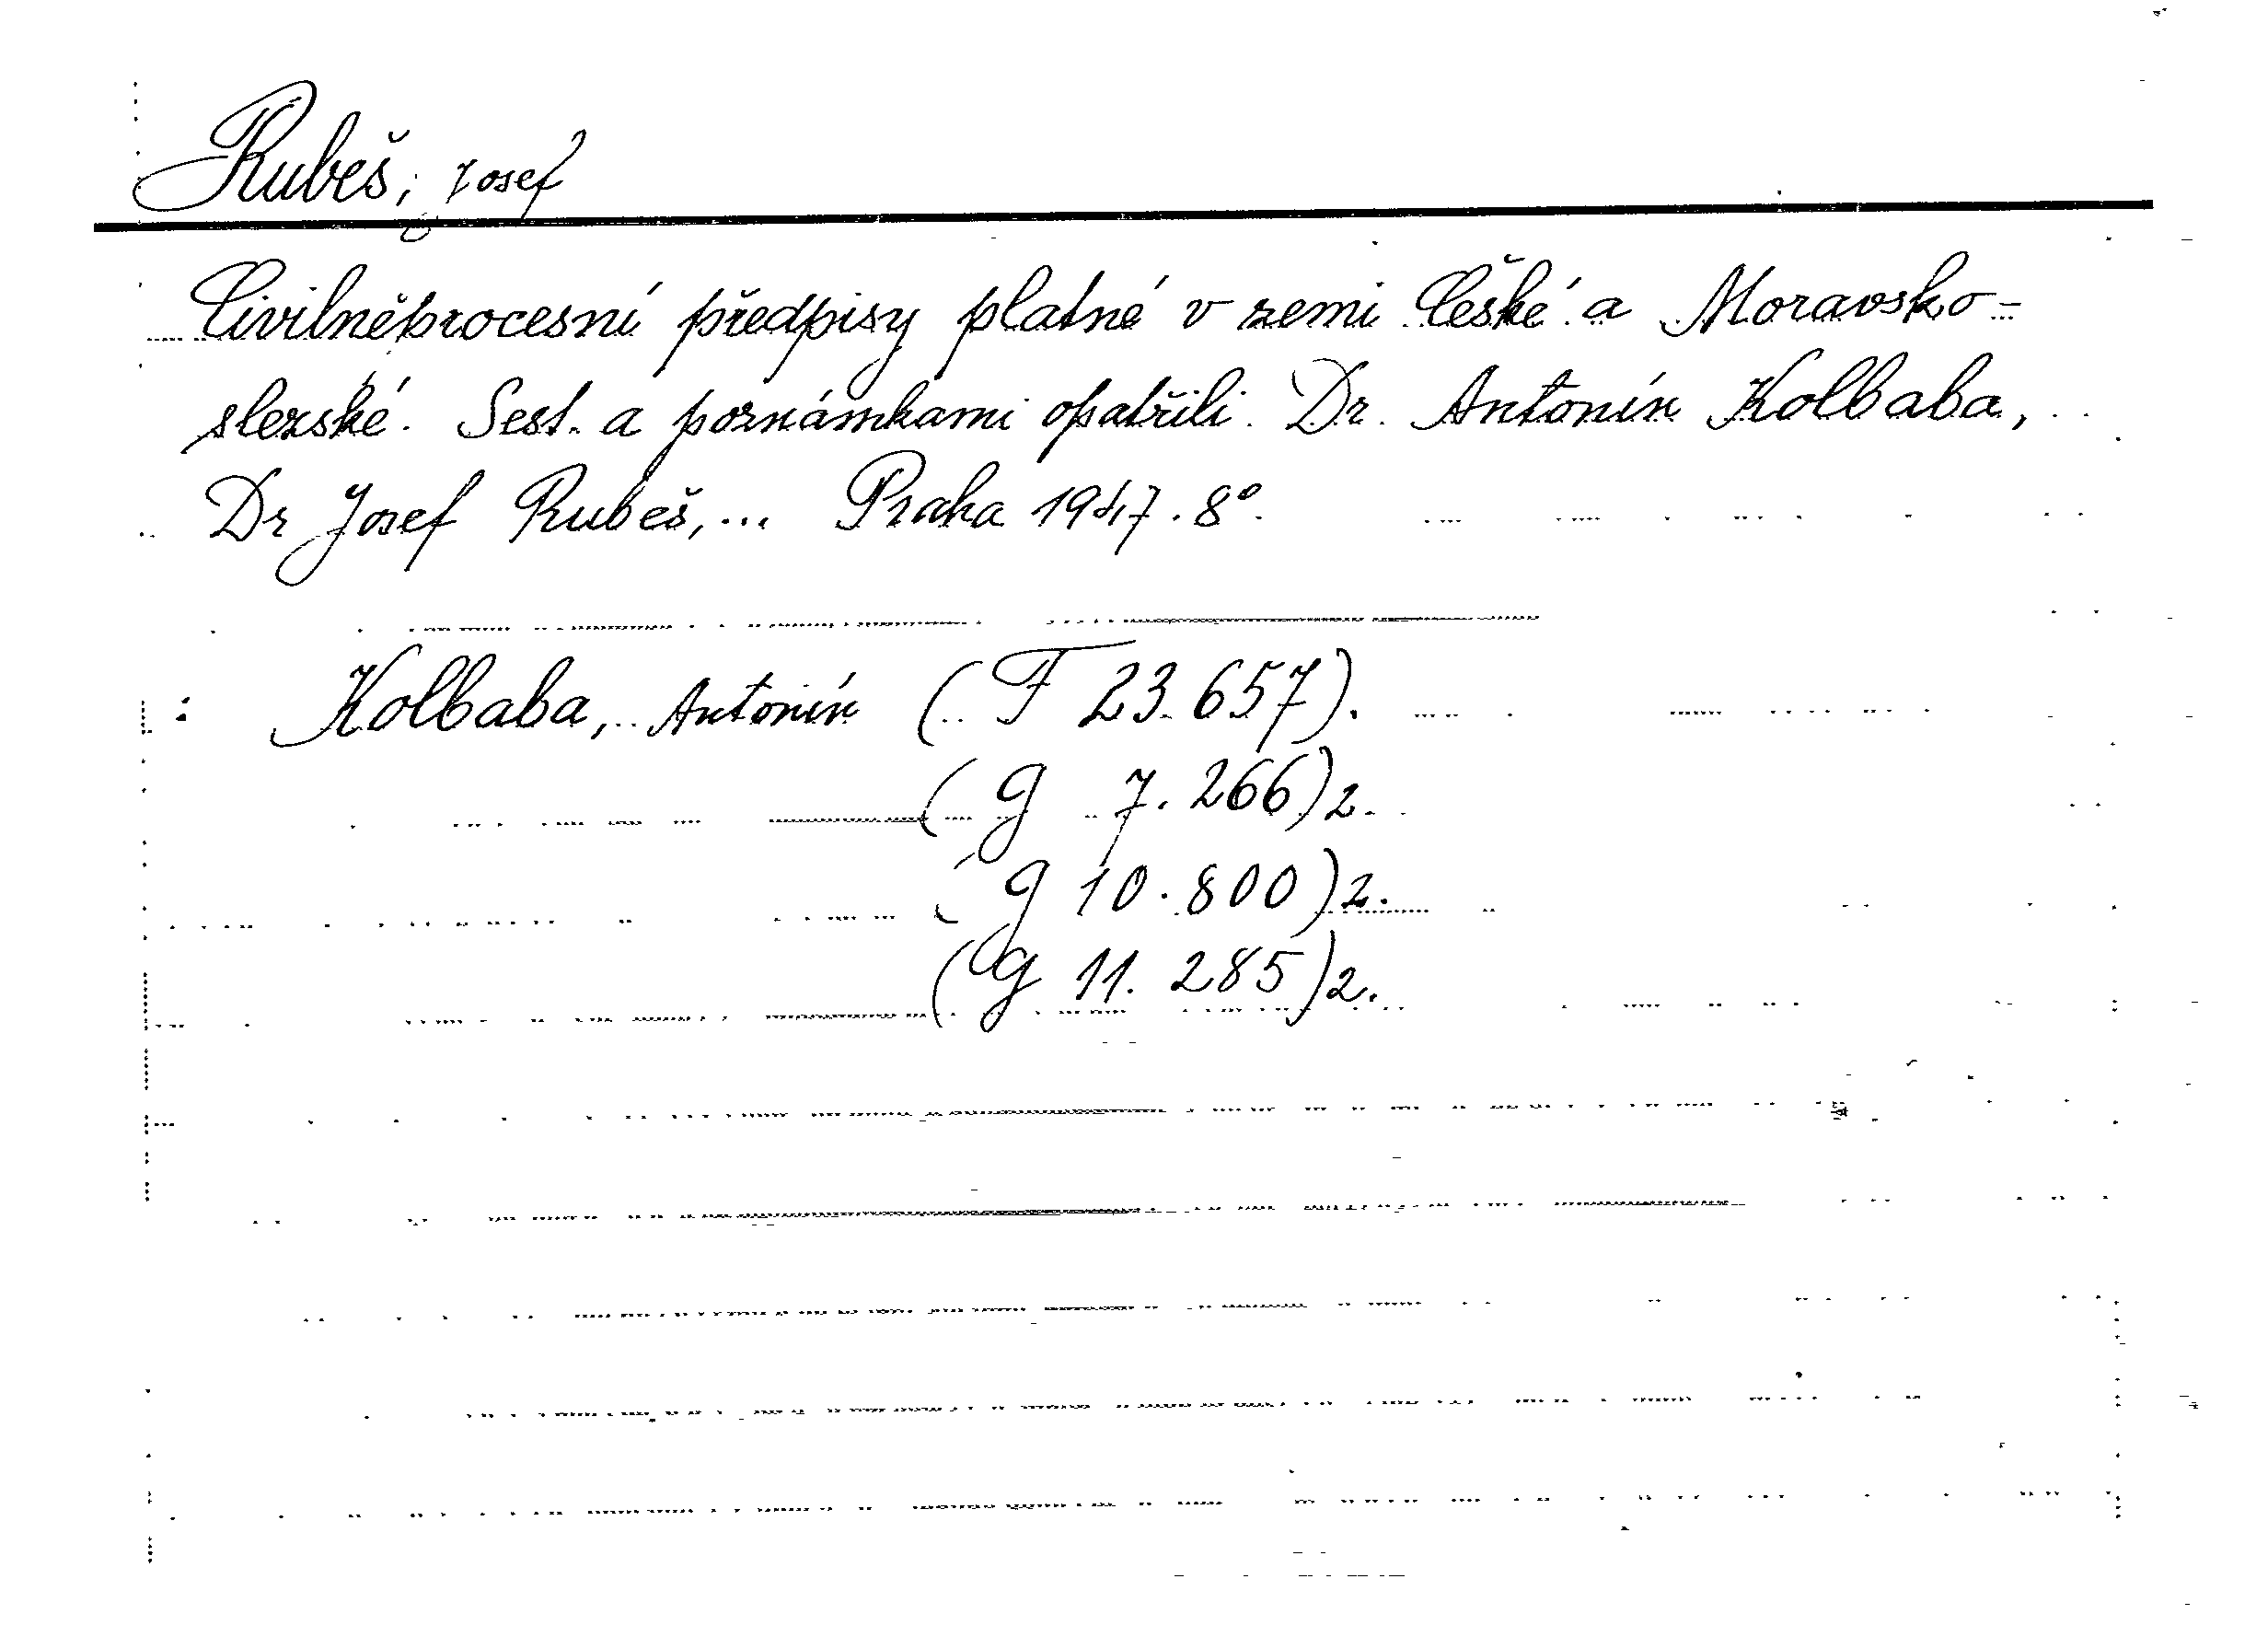 Rubeš, Josef
Civilněprocesní předpisy platné v zemi České a Moravsko-
slezské. Sest. a poznámkami opatřili. Dr. Antonín Kolbaba,
Dr Josef Rubeš, ... Praha 1947. 8°.
: Kolbaba, Antonín (F 23.657).
(g 7.266)2.
(g 10.800)2.
(g 11.285)2.